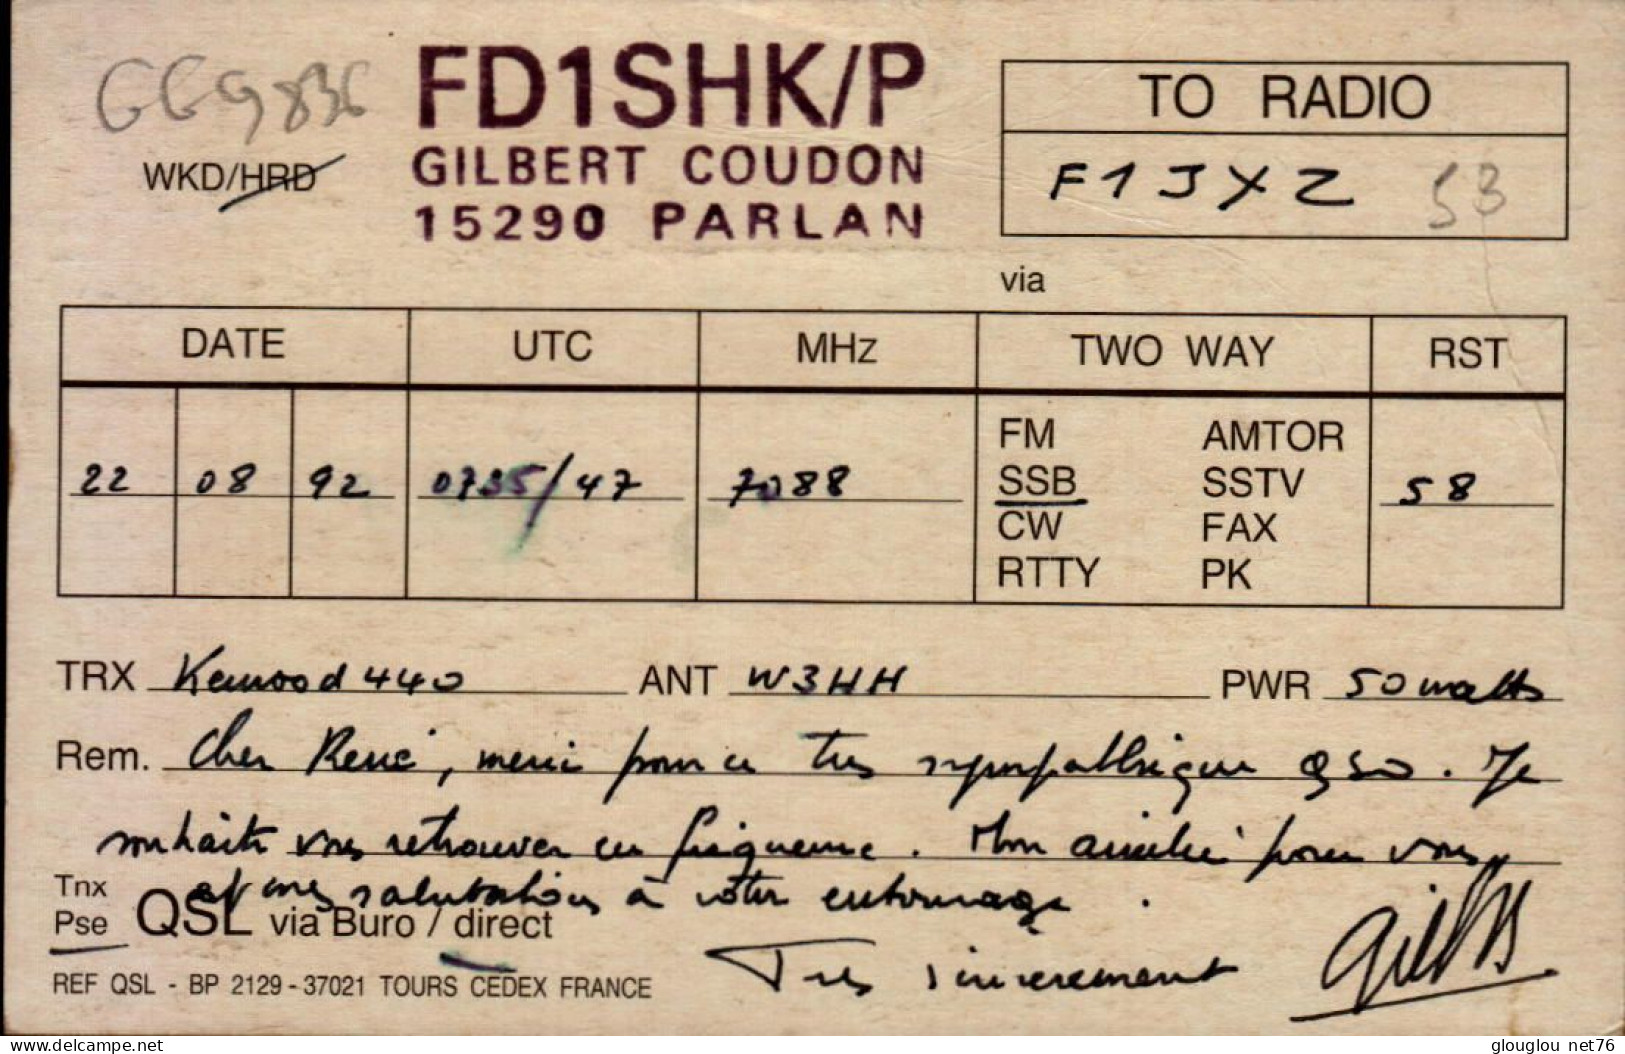 FD1SHK/P
GILBERT COUDON
15290 PARLAN
WKD/HRD
TO RADIO
F1JXZ 53
via
DATE UTC MHz TWO WAY RST
FM AMTOR
22 08 92 0735/47 7088 SSB SSTV 58
CW FAX
RTTY PK
TRX Kenwood 440 ANT W3HH PWR 50 watts
Rem. Cher René, merci pour ce très sympathique QSO. Je
souhaite vous retrouver en fréquence. Mon amitié pour vous
et mes salutations à votre entourage.
Tnx
Pse QSL via Buro / direct
Très sincèrement
REF QSL - BP 2129 - 37021 TOURS CEDEX FRANCE
www.delcampe.net glouglou net76